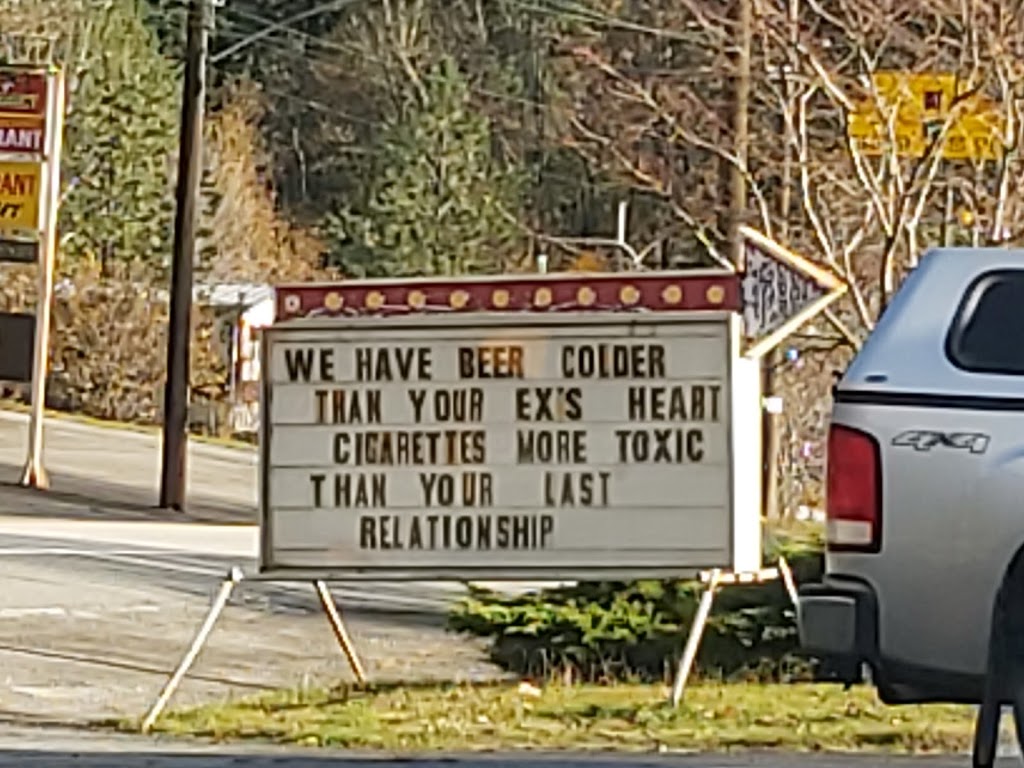 RANT
ANT
WE HAVE BEER COLDER
THAN YOUR EX'S HEART
CIGARETTES MORE TOXIC
THAN YOUR LAST
RELATIONSHIP
4x4